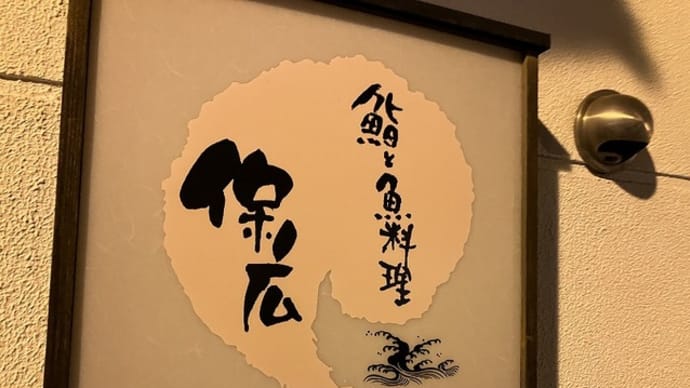 鮨と魚料理
保広